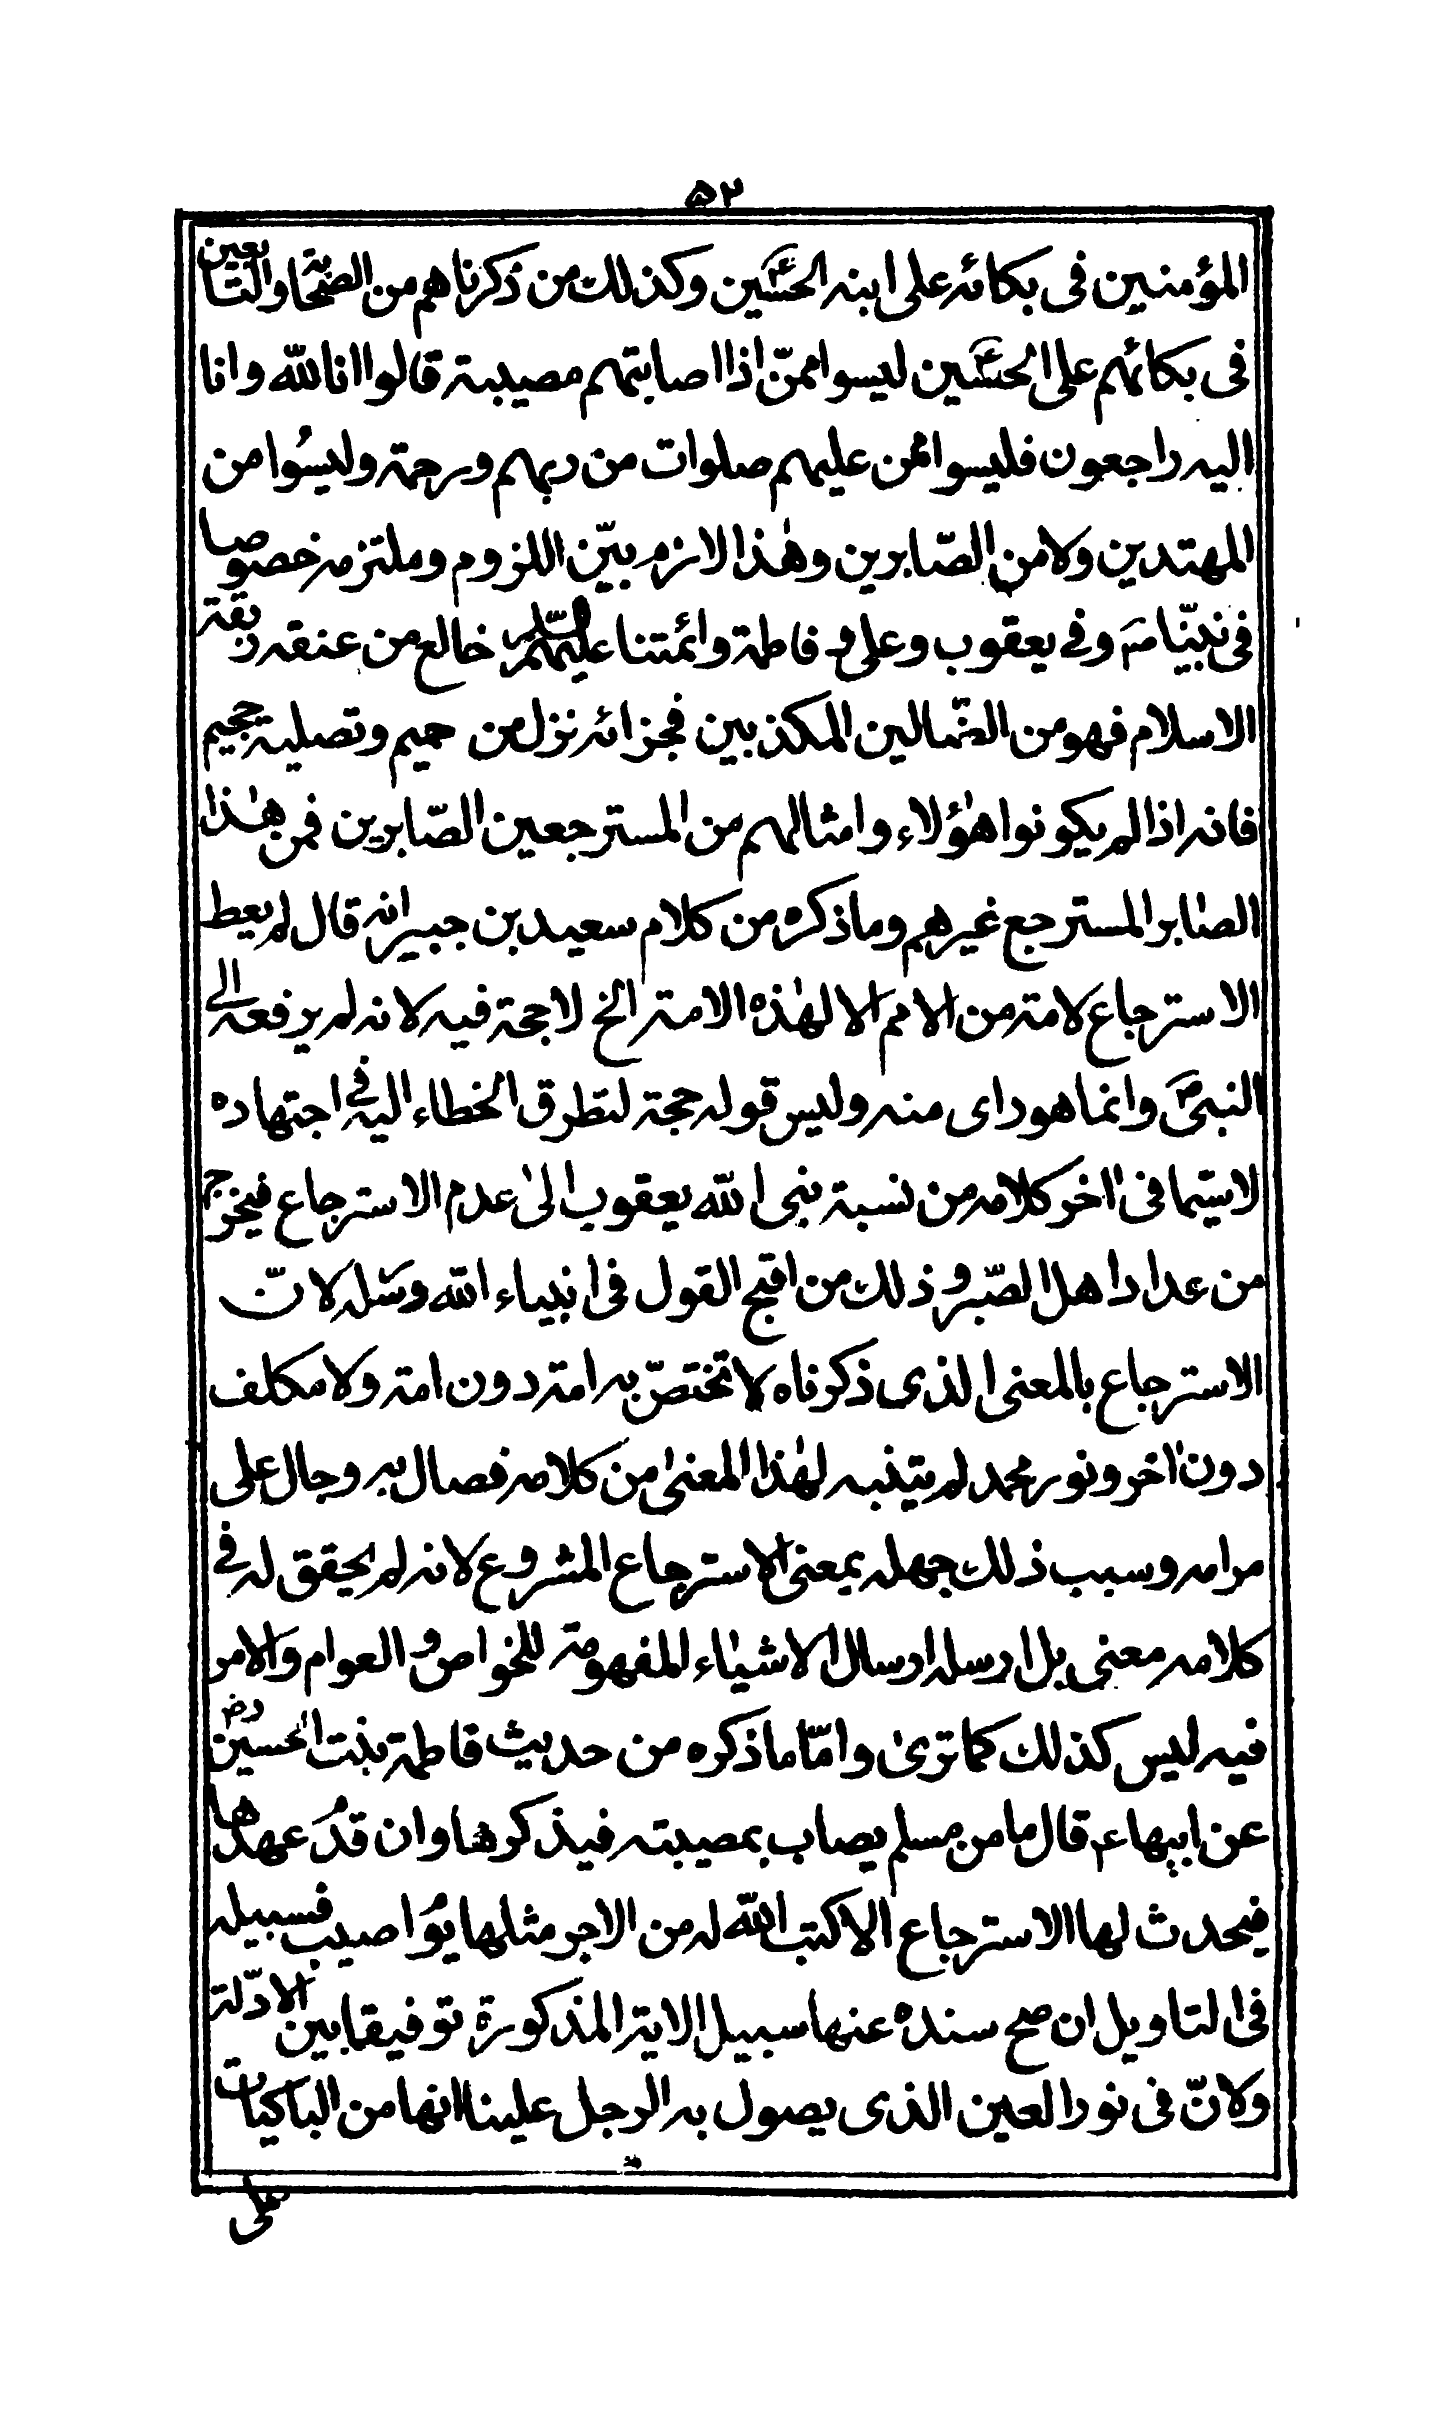 ٥٣
المؤمنين فى بكائه على ابنه الحسين وكذلك من ذكرناهم من الصحابة والتابعين
فى بكائهم على الحسين ليسوا ممّن اذا اصابتهم مصيبة قالوا انا لله وانا
اليه راجعون فليسوا ممن عليهم صلوات من ربهم ورحمة وليسُوا من
المهتدين ولا من الصّابرين وهٰذا لازم بيّن اللزوم وملتزمه خصوصا
فى نبيّنا صم وفى يعقوب وعلى وفاطمة وائمتنا عليهم السلام خالع من عنقه ربقة
الاسلام فهو من الضّالين المكذبين فجزائه نزل من حميم وتصلية جحيم
فانه اذا لم يكونوا هٰؤلاء وامثالهم من المسترجعين الصّابرين فمن هٰذا
الصابر المسترجع غيرهم وما ذكره من كلام سعيد بن جبير انه قال لم يعط
الاسترجاع لامة من الامم الا لهٰذه الامة الخ لا حجة فيه لانه لم يرفعه الى
النبىؐ وانما هو راى منه وليس قوله حجة لتطرق الخطاء اليه فى اجتهاده
لاسيّما فى اٰخر كلامه من نسبة نبى الله يعقوب الىٰ عدم الاسترجاع فيخرج
من عداد اهل الصّبر وذلك من اقبح القول فى انبياء الله ورسله لانّ
الاسترجاع بالمعنى الذى ذكرناه لا تختصّ به امة دون امة ولا مكلف
دون اٰخر ونور محمد لم يتنبه لهٰذا المعنىٰ من كلامه فصال به وجال على
مرامه وسبب ذلك جهله بمعنى الاسترجاع المشروع لانه لم يحقق له فى
كلامه معنى بل ارسله ارسال الاشياء المفهومة للخواص والعوام والامر
فيه ليس كذلك كما ترىٰ وامّا ما ذكره من حديث فاطمة بنت الحسين رض
عن ابيها ع قال ما من مسلم يصاب بمصيبته فيذكرها وان قدُم عهدها
فيحدث لها الاسترجاع الا كتب الله له من الاجر مثلها يوم اصيب فسبيله
فى التاويل ان صح سنده عنها سبيل الاية المذكورة توفيقا بين الادّلة
ولانّ فى نور العين الذى يصول به الرجل علينا انها من الباكيات
على